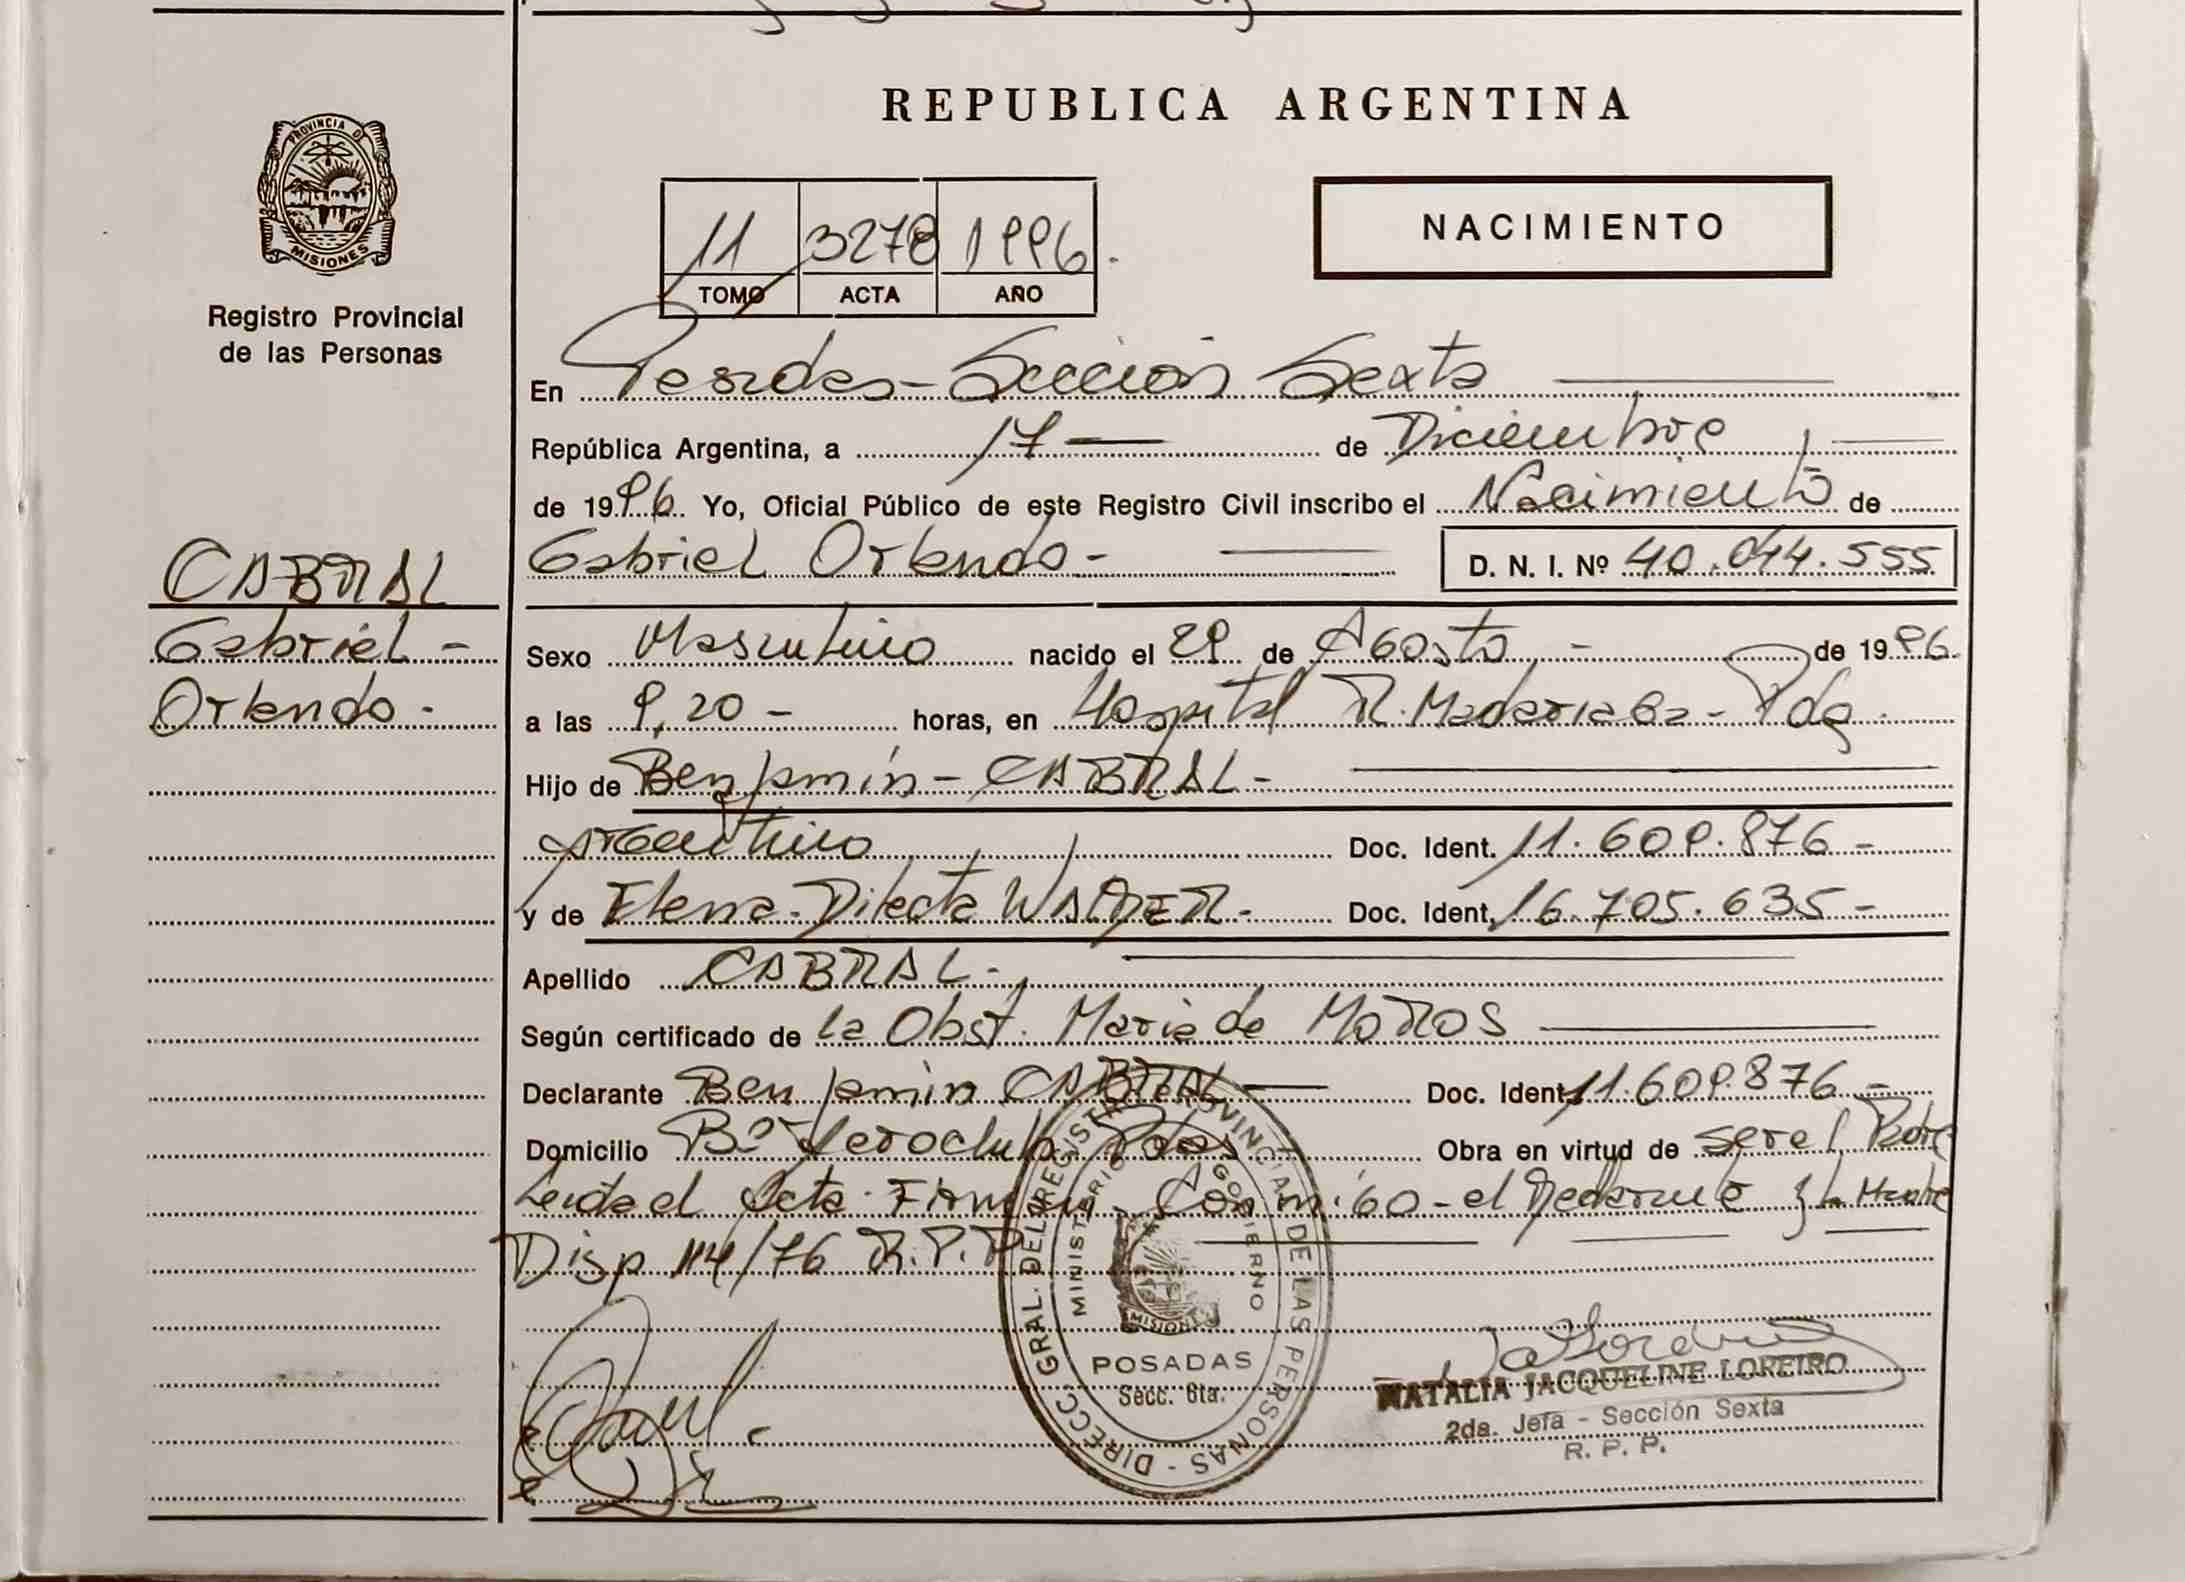 REPUBLICA ARGENTINA
PROVINCIA DE
MISIONES
Registro Provincial
de las Personas
11 3278 1996.
TOMO ACTA AÑO
NACIMIENTO
En Posadas - Sección Sexta
República Argentina, a 17 de Diciembre
de 1996 Yo, Oficial Público de este Registro Civil inscribo el Nacimiento de
Gabriel Orlando - D. N. I. Nº 40.044.555
CABRAL
Gabriel -
Orlando -
Sexo Masculino nacido el 29 de Agosto - de 1996.
a las 9,20 - horas, en Hospital R. Madariaga - Pdas.
Hijo de Benjamín - CABRAL -
Argentino Doc. Ident. 11.609.876 -
y de Elena - Dilecta Doc. Ident. 16.705.635 -
Apellido CABRAL -
Según certificado de la Obst. Maria de MOROS
Declarante Benjamín CABRAL Doc. Ident. 11.609.876 -
Domicilio Bº Aeroclub Pdas Obra en virtud de ser el Padre
Leida el Acta Firman Conmigo - el Declarante y la Madre
Disp 114/76 R.P.P
DIRECC. GRAL. DEL REGISTRO PROVINCIAL DE LAS PERSONAS -
MINISTERIO GOBIERNO
MISIONES
POSADAS
Secc. 6ta.
NATALIA JACQUELINE LOREIRO
2da. Jefa - Sección Sexta
R. P. P.